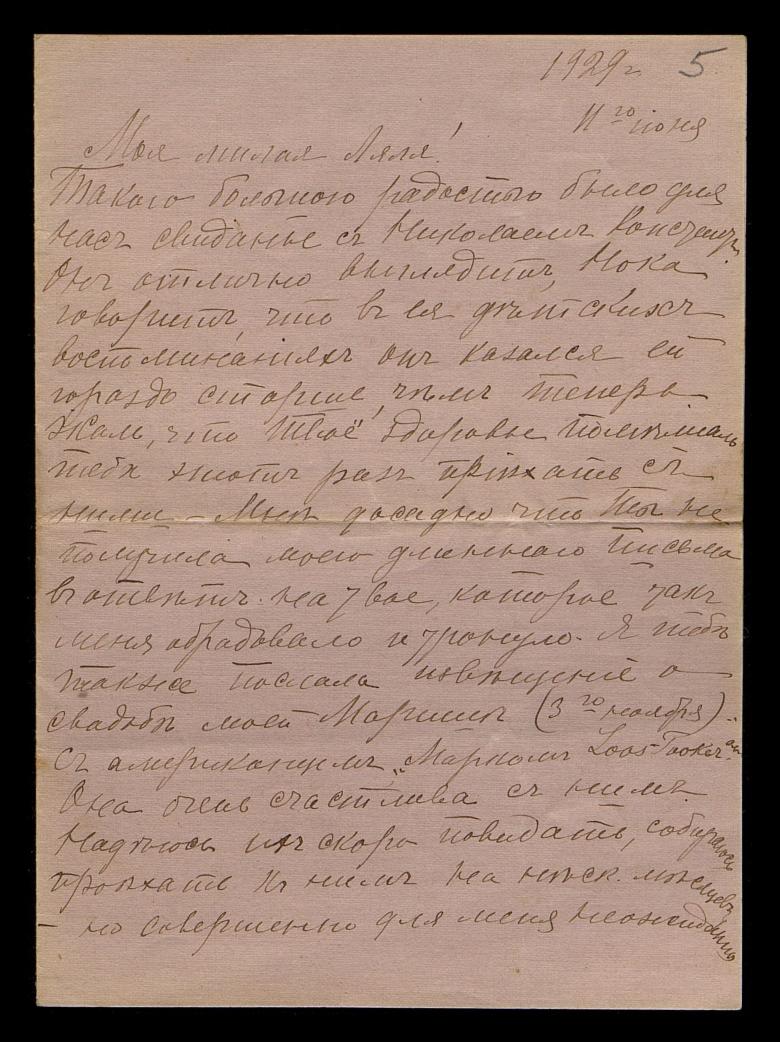 1929 г. 5
11го июня
Моя милая Ляля!
Такою большою радостью было для
насъ свиданье съ Николаемъ Констант.
Онъ отлично выглядитъ, Нока
говоритъ, что въ ея дѣтскихъ
воспоминаніяхъ онъ казался ей
гораздо старше, чѣмъ теперь
Жаль, что Твоё здоровье помѣшалъ
тебѣ этотъ разъ пріѣхать съ
ними – Мнѣ досадно что Ты не
получила моего длиннаго письма
въ отвѣтъ на Твое, которое такъ
меня обрадовало и тронуло. Я тебѣ
также послала извѣщеніе о
свадьбѣ моей Марины (3го ноября)
съ американцемъ „Маркомъ Loos-
Она очень счастлива съ нимъ.
Надѣюсь ихъ скоро повидать, собираюсь
проѣхать къ нимъ на нѣск. мѣсяцевъ
– но совершенно для меня неожиданно